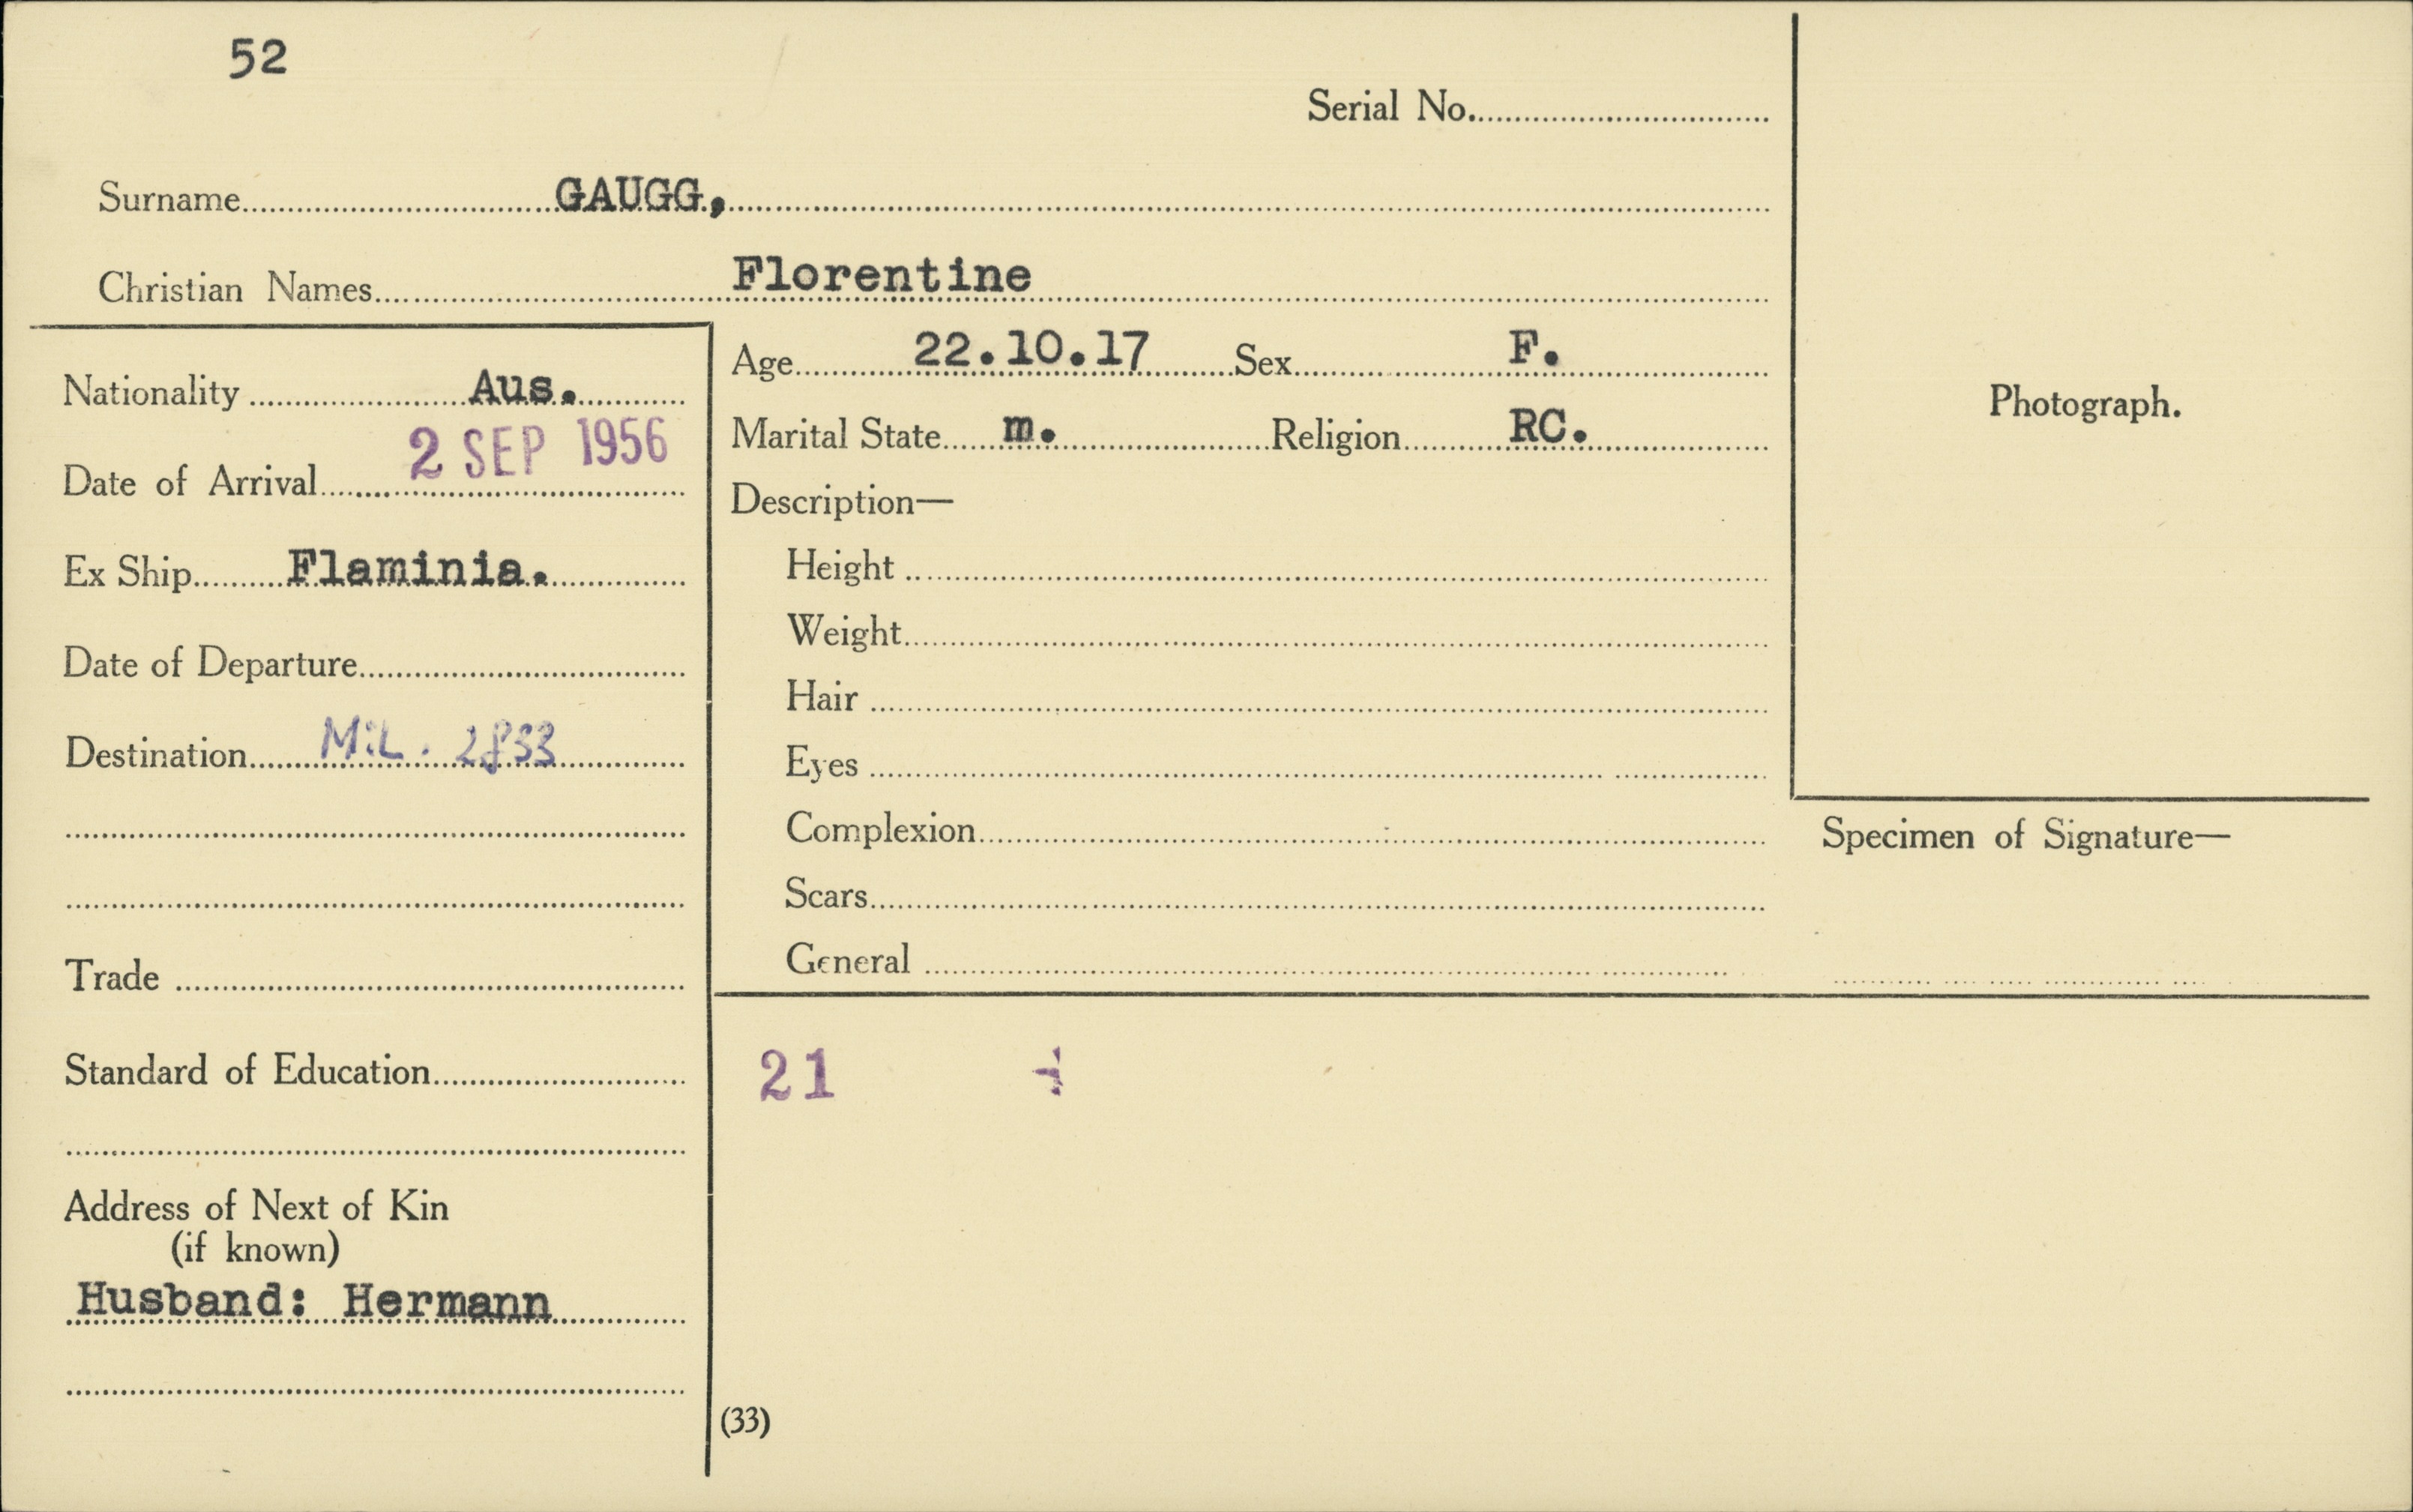 52
Serial No.
Surname GAUGG,
Christian Names Florentine
Nationality Aus.
Date of Arrival 2 SEP 1956
Ex Ship Flaminia.
Date of Departure
Destination MiL.
Trade
Standard of Education
Address of Next of Kin
(if known)
Husband: Hermann
Age 22.10.17 Sex F.
Marital State m. Religion RC.
Description—
Height
Weight
Hair
Eyes
Complexion
Scars
General
21
(33)
Photograph.
Specimen of Signature—